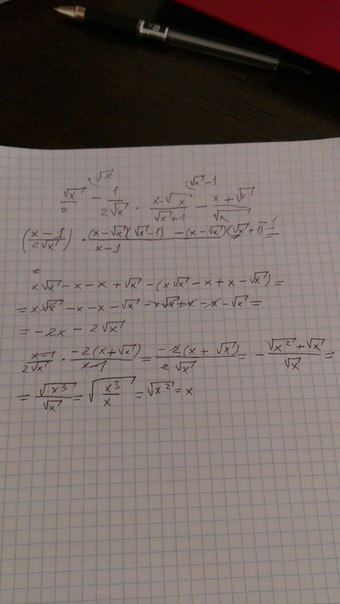 √x √x-1
√x/2 - 1/2√x · x-√x/√x+1 - x+√x/√x
(x-1/2√x) · (x-√x)(√x-1) -(x-√x)(√x+1)/x-1 =
x√x-x-x+√x-(x√x-x+x-√x)=
=x√x-x-x-√x-x√x+x-x-√x=
=-2x-2√x
x-1/2√x · -2(x+√x)/x-1 = -2(x+√x)/2√x = -√x²+√x/√x =
=√x³/√x=√x³/x=√x²=x